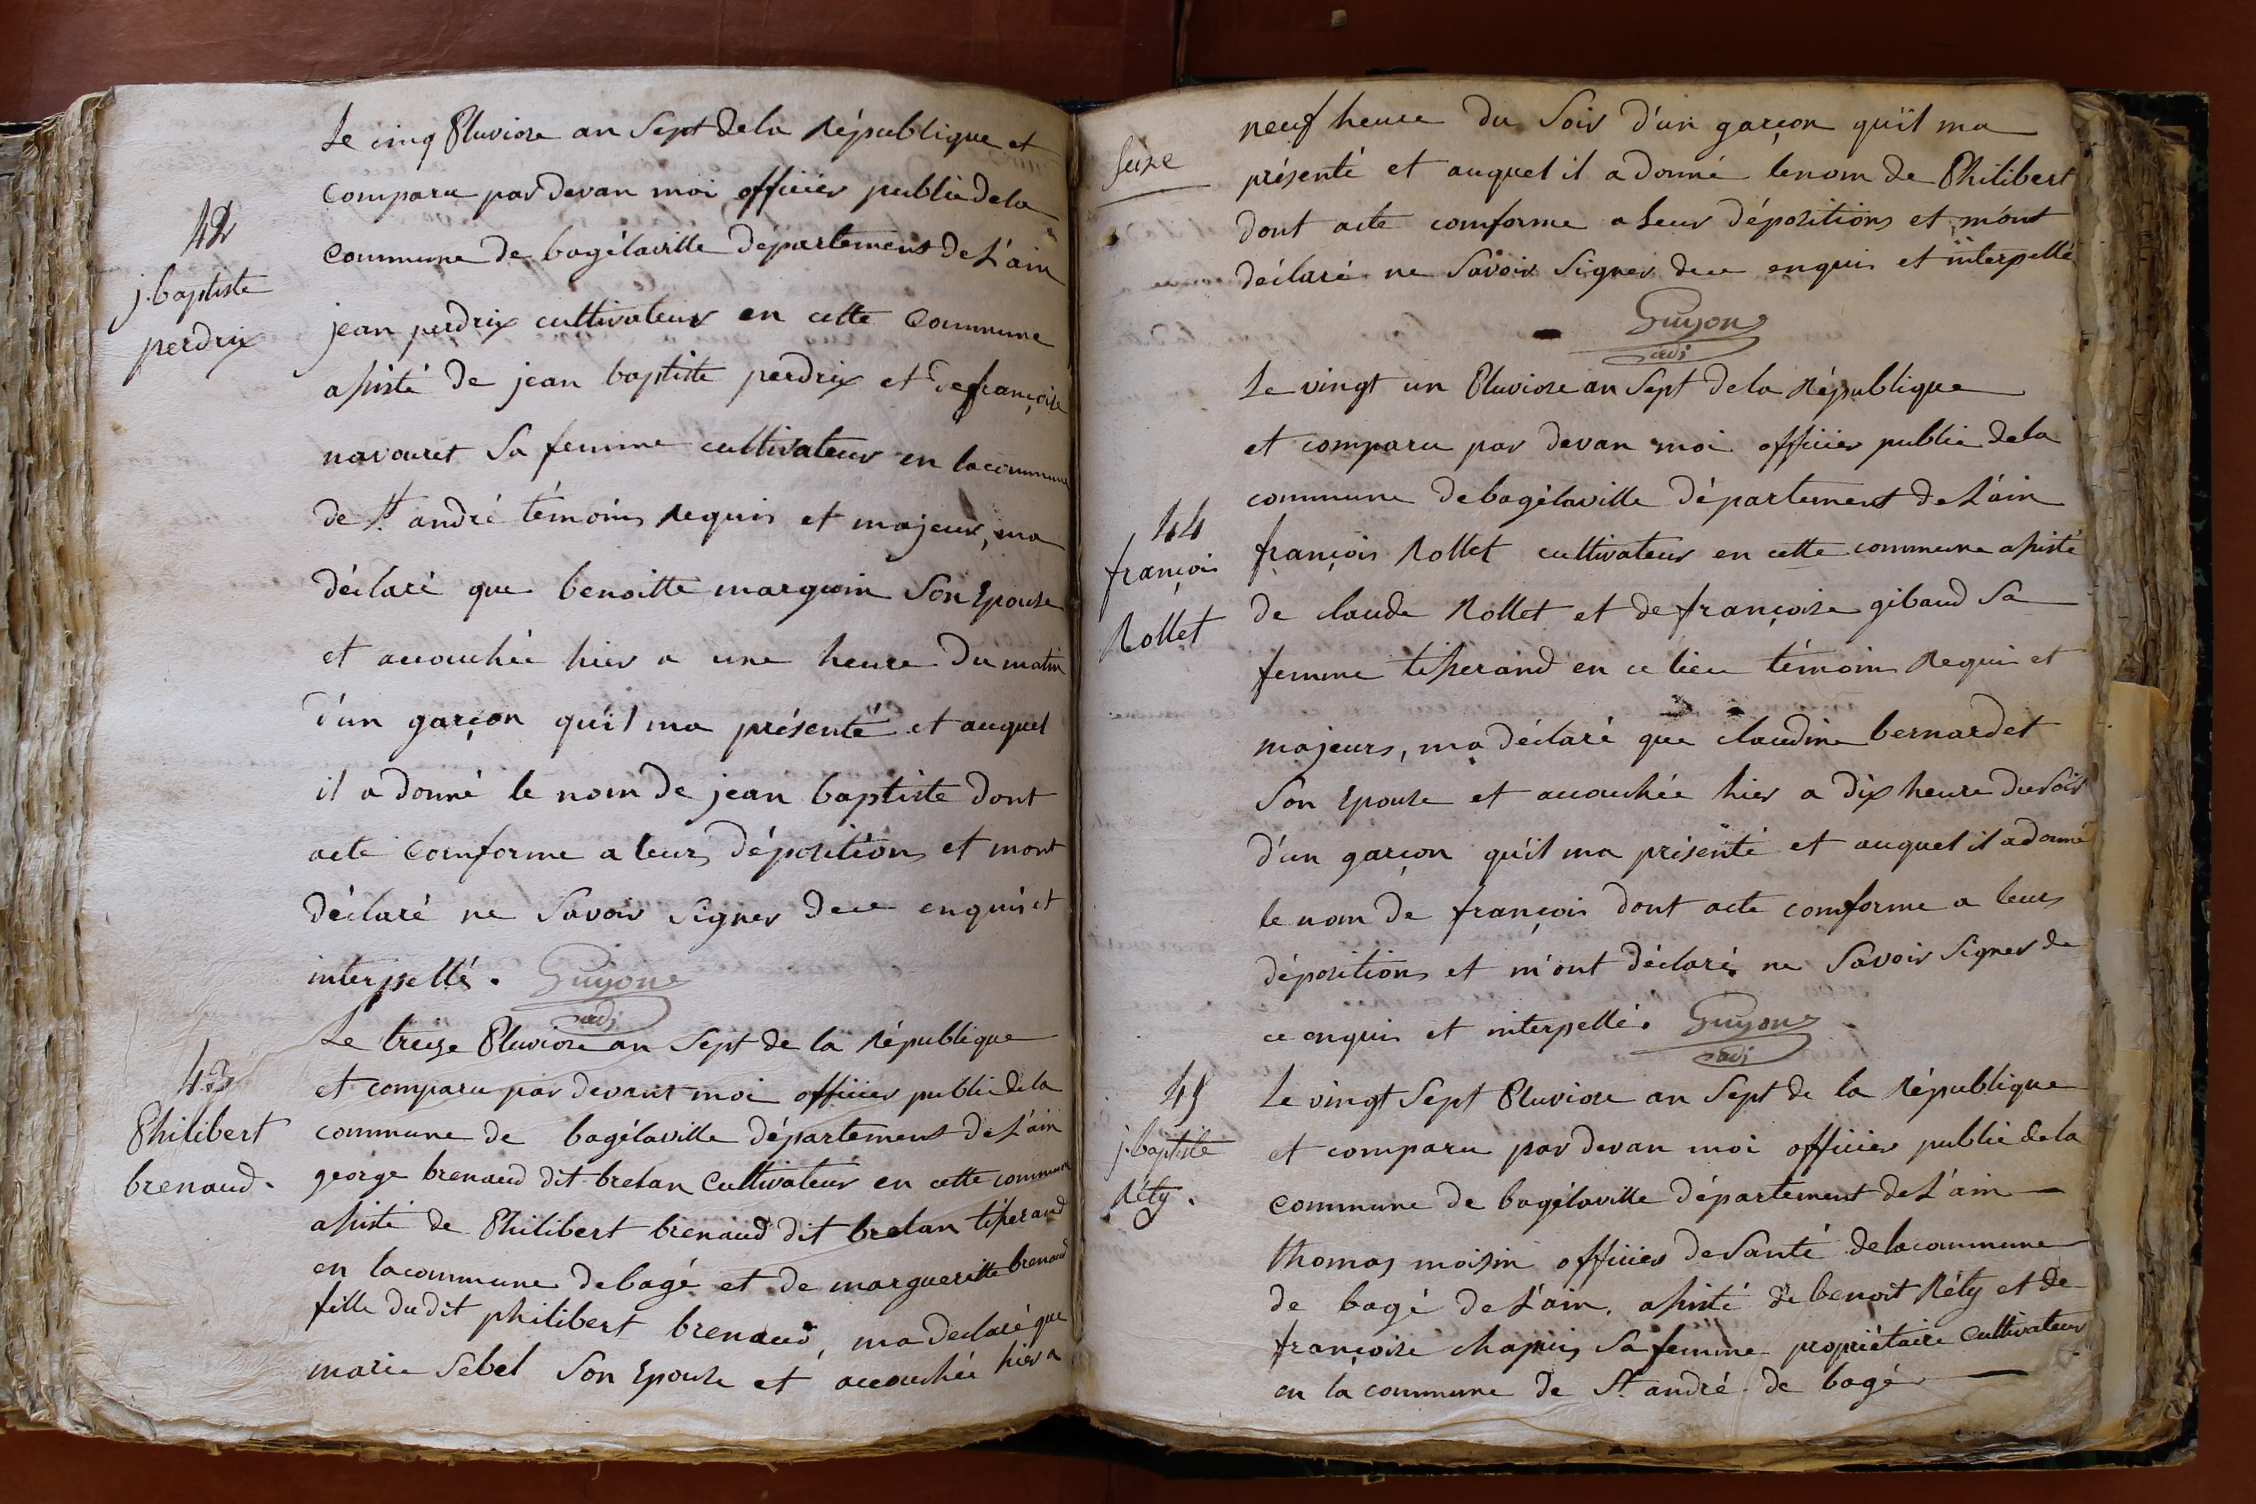 42
j. baptiste
perdrix
Le cinq Pluviose an Sept de la République et
comparu par devan moi officier public de la
commune de bagélaville département de L'ain
jean perdrix cultivateur en cette commune
assisté de jean baptiste perdrix et de françoise
navouret Sa femme cultivateur en la commune
de St. andré témoins requis et majeur, ma
déclaré que benoitte marguin Son Epouse
et accouchée hier a une heure du matin
d'un garçon qu'il ma présenté et auquel
il a donné le nom de jean baptiste dont
acte comforme a leurs dépositions et mont
déclaré ne Savoir Signer de ce enquis et
interpellés. Guyon
adj
43
Philibert
brenaud.
Le treize Pluviose an Sept de la République
et comparu par devant moi officier public de la
commune de bagélaville département de L'ain
george brenaud dit brelan Cultivateur en cette commune
assisté de Philibert brenaud dit brelan tisserand
en la commune de bagé et de margueritte brenaud
fille du dit philibert brenaud, ma déclaré que
marie Sebel Son Epouse et accouchée hier a
Seize
neuf heure du Soir d'un garçon qu'il ma
présenté et auquel il a donné le nom de Philibert
dont acte comforme a Leurs dépositions et m'ont
déclaré ne Savoir Signer de ce enquis et interpellé
Guyon
adj
44
françois
Rollet
Le vingt un Pluviose an Sept de la République
et comparu par devan moi officier public de la
commune de bagélaville département de L'ain
françois Rollet cultivateur en cette commune assisté
de claude Rollet et de françoise gibaud Sa
femme tisserand en ce lieu témoins Requis et
majeurs, ma déclaré que claudine bernardet
Son Epouse et accouchée hier a dix heure du soir
d'un garçon qu'il ma présenté et auquel il a donné
le nom de françois dont acte comforme a leurs
dépositions et m'ont déclarés ne Savoir Signer de
ce enquis et interpellé. Guyon
adj
45
j. baptiste
Réty.
Le vingt Sept Pluviose an Sept de la République
et comparu par devan moi officier public de la
commune de bagélaville département de L'ain
thomas moisin officier de Santé de la commune
de bagé de L'ain. assisté de benoit Réty et de
françoise chapuis Sa femme propriétaire Cultivateur
en la commune de St. andré de bagé